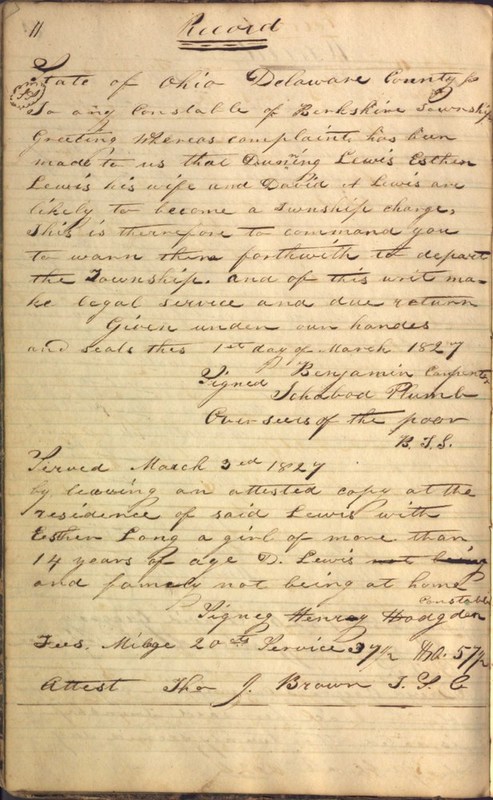 11
Record
State of Ohio Delaware County ss
To any Constable of Berkshire Township
Greeting Whereas complaint has been
made to us that Downing Lewis Esther
Lewis his wife and David A Lewis are
likely to become a Township charge,
This is therefore to command you
to warn them forthwith to depart
the Township. and of this writ ma-
ke legal service and due return
Given under our handes
and seals this 1st day of March 1827
Benjamin Carpenter
Signed Ichabod Plumb
Over seers of the poor
B. T. S.
Served March 3rd 1827
by leaving an attested copy at the
residence of said Lewis with
Esther Long a girl of more than
14 years of age D. Lewis not being
and famely not being at home
Constable
Signed Henry Hodgden
Fees. Milage 20 cts Service 37 1/2 57 1/2
Attest Tho J. Brown T. C